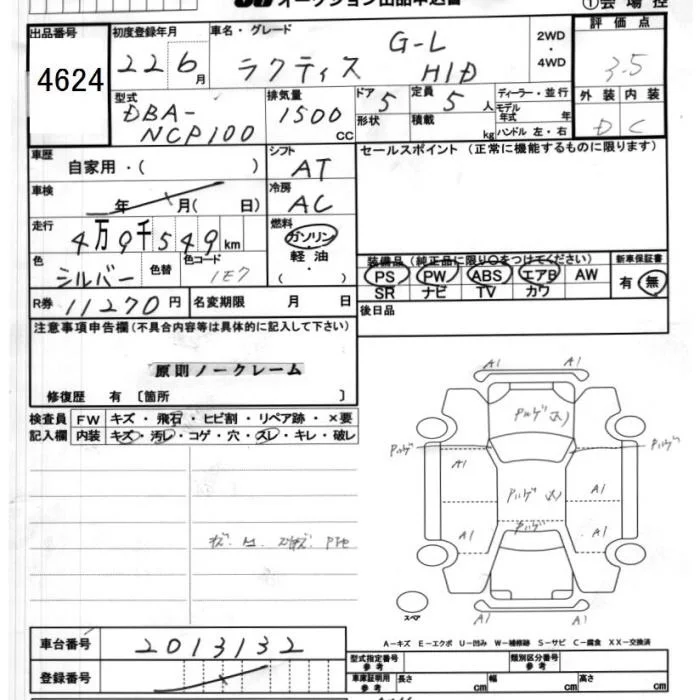 オークション出品申込書
①会場控
出品番号 初度登録年月 車名・グレード 評価点
4624 22 6月 ラクティス G-L HID 2WD・4WD 3.5
型式 排気量 ドア 定員 ディーラー・並行 外装 内装
DBA-NCP100 1500CC 5 5人 モデル年式 年 D C
形状 積載 kg ハンドル 左・右
車歴 自家用・( ) シフト AT セールスポイント (正常に機能するものに限ります)
車検 年 月( 日) 冷房 AC
走行 4万9千549km 燃料 ガソリン 軽油 ( ・ )
装備品(純正品に限り○をつけてください) 新車保証書
色 シルバー 色替 色コード 1E7
PS PW ABS エアB AW 有 無
SR ナビ TV カワ
R券 11270円 名変期限 月 日
後日品
注意事項申告欄(不具合内容等は具体的に記入して下さい)
原則ノークレーム
修復歴 有 〔箇所 〕
検査員記入欄 FW キズ・飛石・ヒビ割・リペア跡・×要
内装 キズ・汚レ・コゲ・穴・スレ・キレ・破レ
A1 A1
パルゲ 大)
パルゲ パルゲ
A1 A1
パルゲ 大)
パルゲ
A1 A1
スペア
A1 A1
車台番号 2013132
A-キズ E-エクボ U-凹み W-補修跡 S-サビ C-腐食 XX-交換済
登録番号
型式指定番号 参考 類別区分番号 参考
車庫証明用 参考 長さ cm 幅 cm 高さ cm